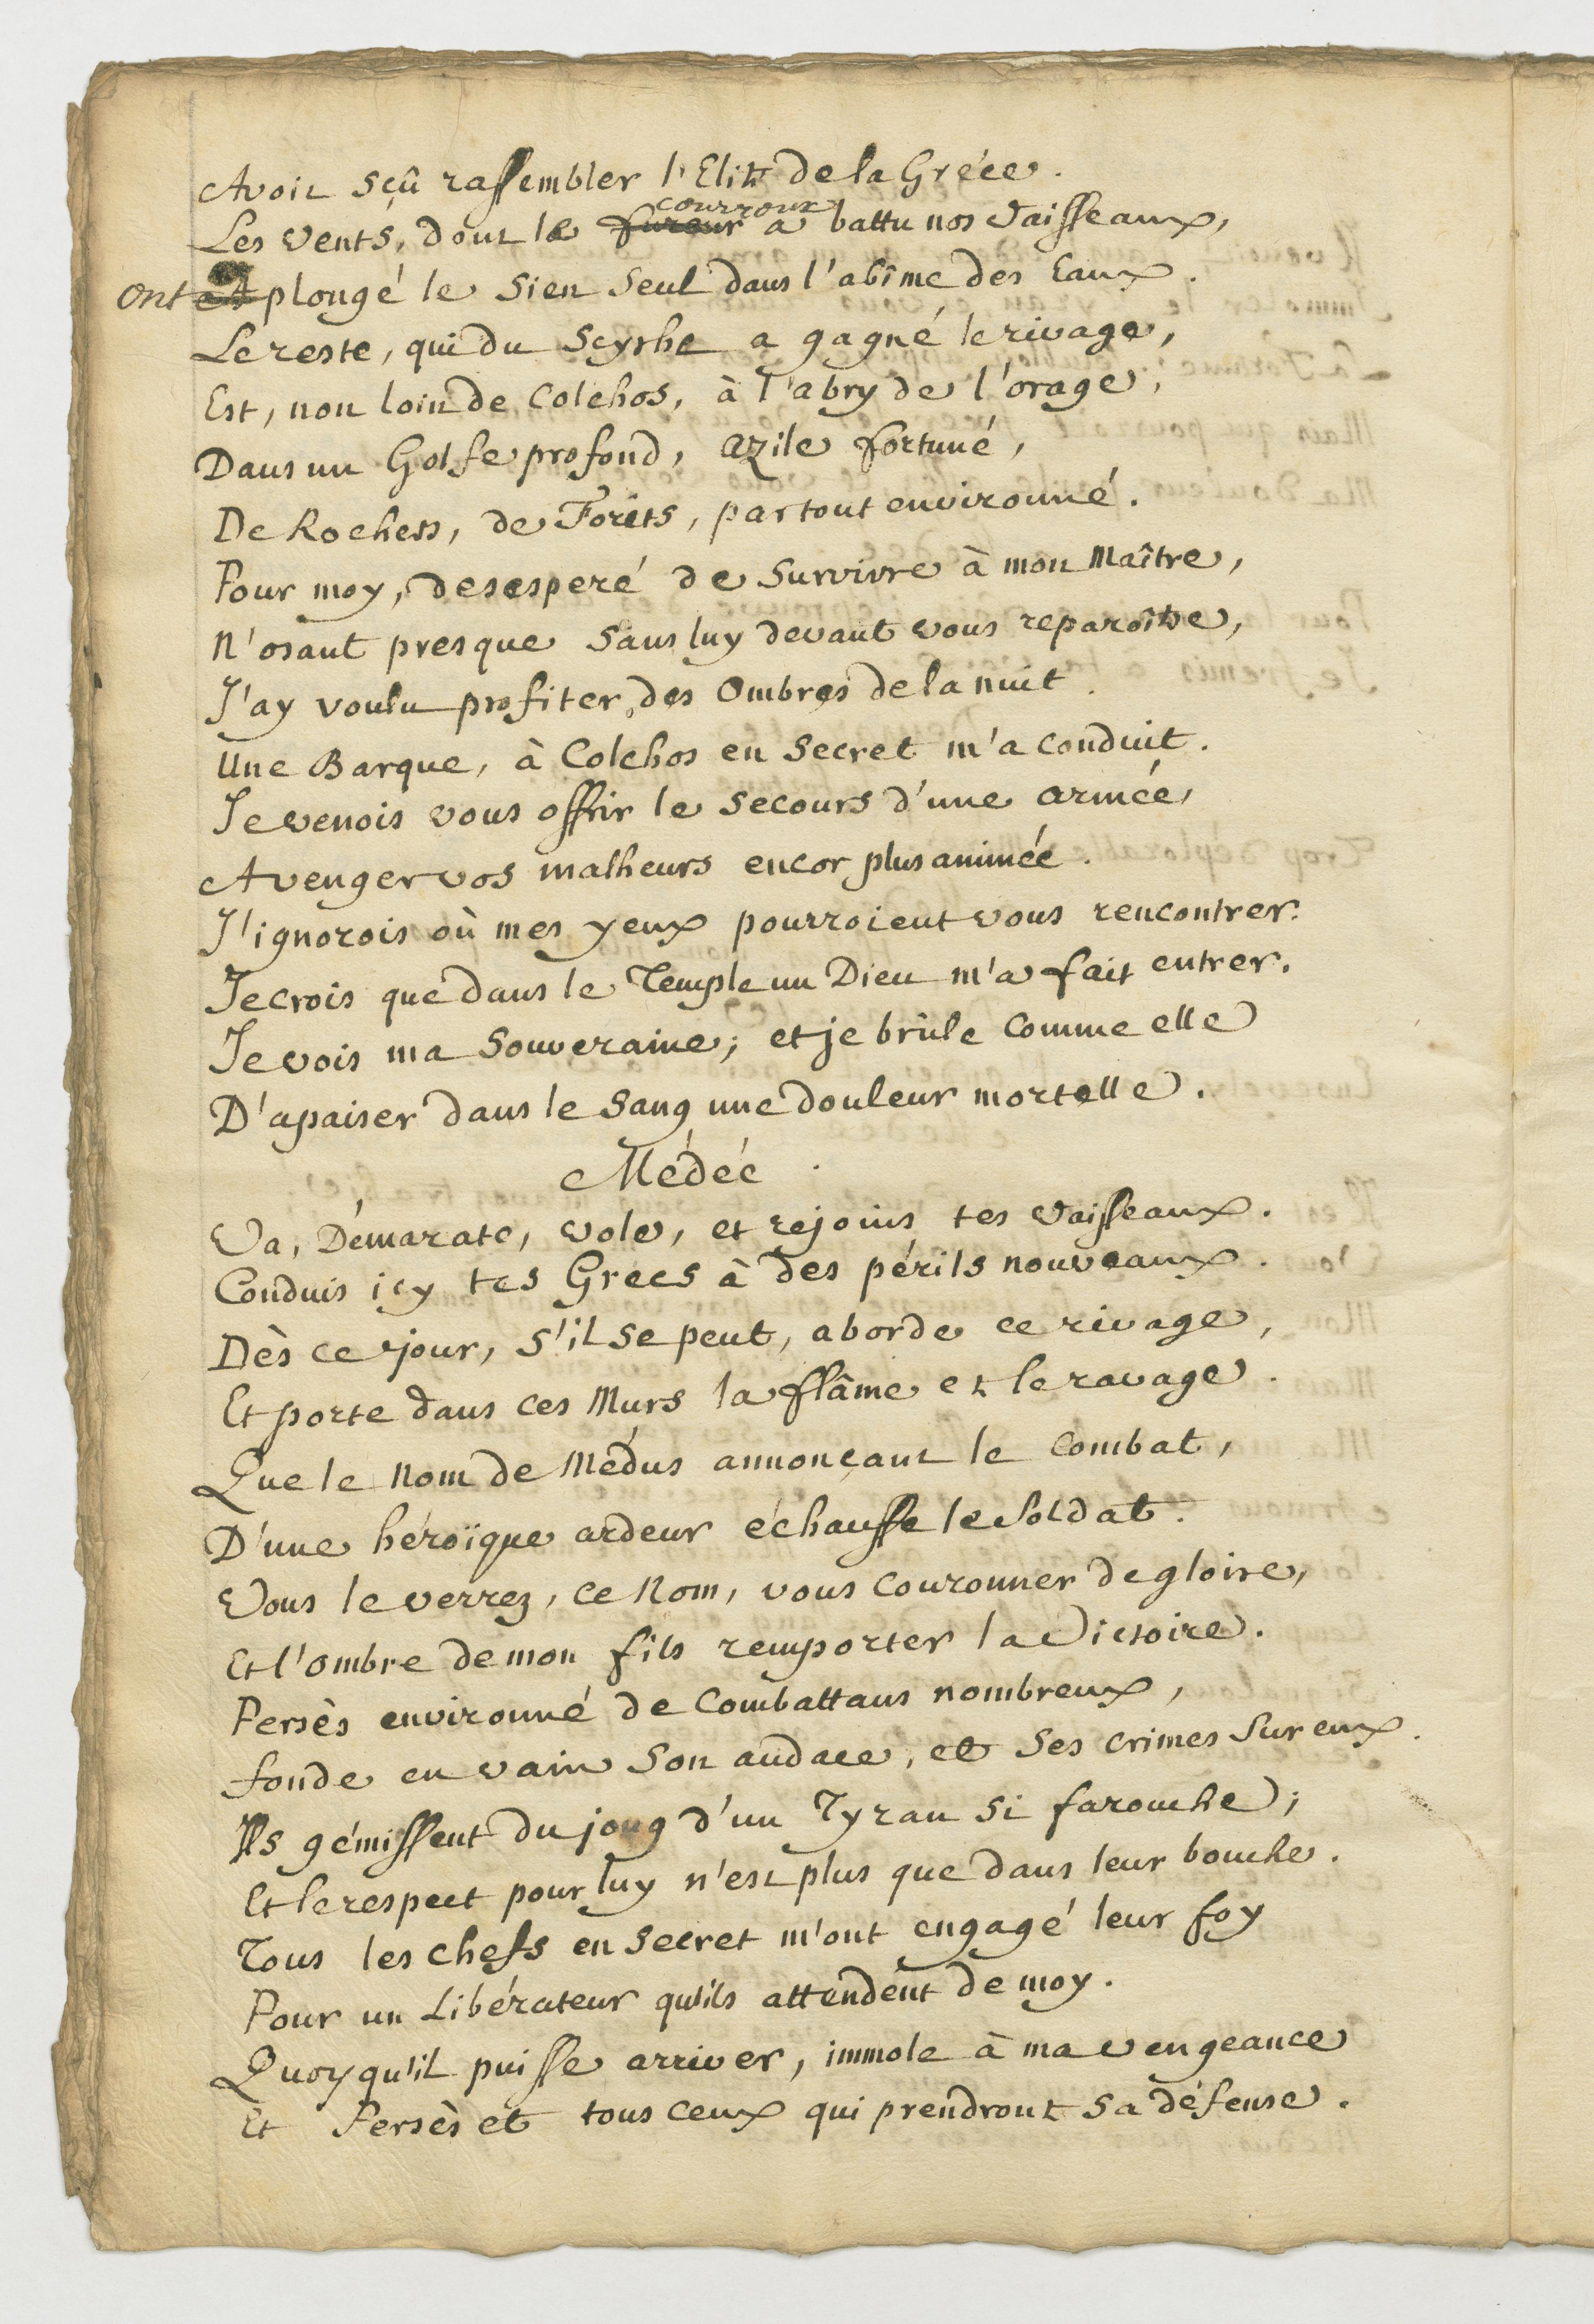 Avoir sçû rassembler l'Elite de la Gréce.
Les vents, dont le courroux a battu nos Vaisseaux,
ont plongé le sien seul dans l'abîme des Eaux.
Le reste, qui du Scythe a gagné le rivage,
Est, non loin de Colchos, à l'abry de l'orage,
Dans un Golfe profond, azile fortuné,
De Rochers, de Forêts, partout environné.
Pour moy, desesperé de survivre à mon Maître,
N'osant presque sans luy devant vous reparoître,
J'ay voulu profiter des Ombres de la nuit.
Une Barque, à Colchos en secret m'a conduit.
Je venois vous offrir le secours d'une armée,
A venger vos malheurs encor plus animée.
J'ignorois où mes yeux pourroient vous rencontrer.
Je crois que dans le Temple un Dieu m'a fait entrer.
Je vois ma Souveraine; et je brûle comme elle
D'apaiser dans le sang une douleur mortelle.
Médée
Va, Démarate, vole, et rejoins tes Vaisseaux.
Conduis icy tes Grecs à des périls nouveaux.
Dès ce jour, s'il se peut, aborde ce rivage,
Et porte dans ces Murs la flâme et le ravage.
Que le nom de Médus annonçant le combat,
D'une héroïque ardeur échauffe le Soldat.
Vous le verrez, ce Nom, vous couronner de gloire,
Et l'ombre de mon fils remporter la Victoire.
Persès environné de Combattans nombreux,
fonde en vain son audace, et ses crimes sur eux.
Ils gémissent du joug d'un Tyran si farouche;
Et le respect pour luy n'est plus que dans leur bouche.
Tous les chefs en secret m'ont engagé leur foy
Pour un Libérateur qu'ils attendent de moy.
Quoy qu'il puisse arriver, immole à ma vengeance
Et Persès et tous ceux qui prendront sa défense.